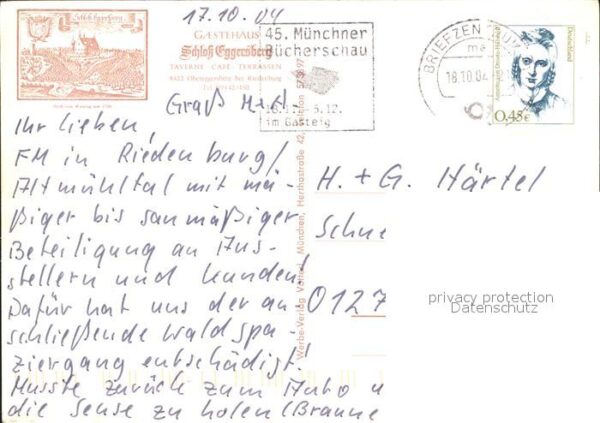 17.10.04
Schloß Eggersberg
GÆSTEHAUS
Schloß Eggersberg
TAVERNE · CAFÉ · TERRASSEN
8422 Obereggersberg bei Riedenburg
45. Münchner
Bücherschau
5.12.
im Gasteig
BRIEFZEN
18.10.04
Deutschland
0,45€
Graß H+H
Ihr Lieben,
FM in Riedenburg/
Altmühltal mit mä-
ßiger bis saumäßiger
Beteiligung an Aus-
stellern und Kunden!
Dafür hat uns der an-
schließende Waldspa-
ziergang entschädigt!
Musste zurück zum Auto u
die Sense zu holen (Braune
Werbe-Verlag München, Herthastraße 42, Telefon
H. + G. Härtel
Schne
0127
privacy protection
Datenschutz